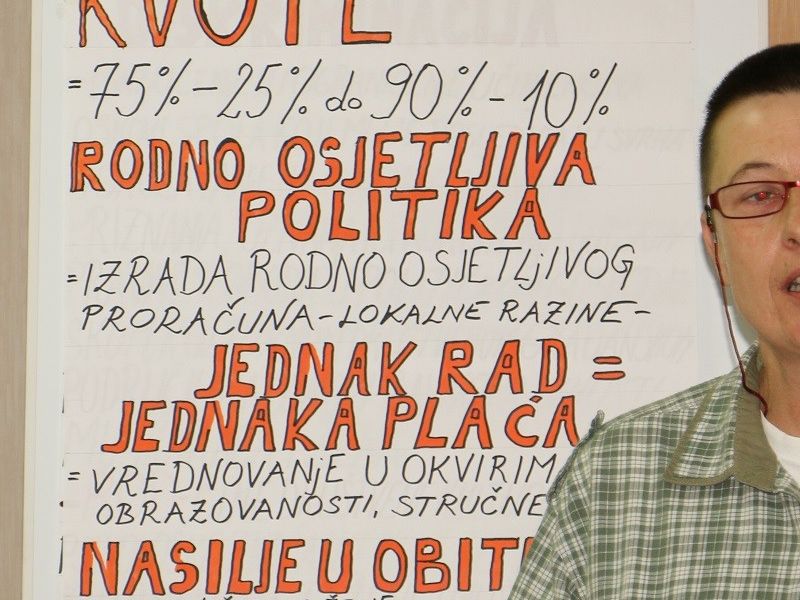 KVOTE
=75%-25% do 90%-10%
RODNO OSJETLJIVA
POLITIKA
=IZRADA RODNO OSJETLjIVOG
PRORAČUNA-LOKALNE RAZINE-
JEDNAK RAD =
JEDNAKA PLAĆA
=VREDNOVANjE U OKVIRIM
OBRAZOVANOSTI, STRUČNE
NASILJE U OBIT